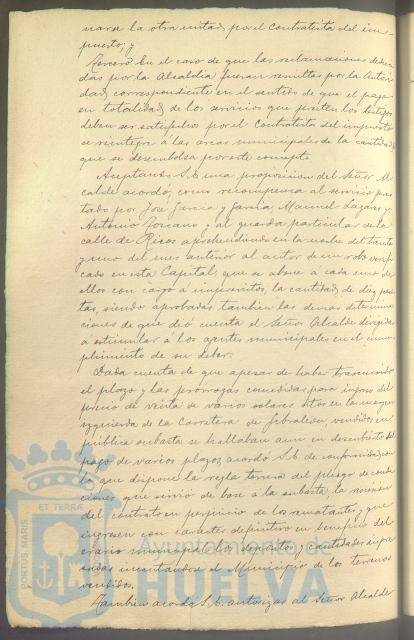 narse la otra mitad, por el Contratista del im
puesto; y
Tercero: En el caso de que las reclamaciones deduci
das por la Alcaldía fueran resueltas por la Autori
dad correspondiente en el sentido de que el pago
en totalidad de los servicios que presten los testigos
deben ser satisfechos por el Contratista del impuesto
se reintegre á las arcas municipales de la cantidad
que se desembolsa por este concepto.
Aceptando S.E. una proposicion del Señor Al
calde acordó, como recompensa al servicio pres
tado por José Garcia y Garcia, Manuel Lazaro y
Antonio Toscano y al guarda particular de la
calle de Ricos aprehendiendo en la noche del treinta
y uno del mes anterior al autor de un robo verifi
cado en esta Capital, que se abone á cada uno de
ellos con cargo á imprevistos, la cantidad de diez pese
tas, siendo aprobadas tambien las demas determina
ciones de que dió cuenta el Señor Alcalde dirigidas
á estimular á los agentes municipales en el cum
plimiento de su deber.
Dada cuenta de que apesar de haber trascurrido
el plazo y las prórrogas concedidas para ingreso del
precio de venta de varios solares sitos en la margen
izquierda de la Carretera de Gibraleon, vendidos en
pública subasta se hallaban aun en descubierto del
pago de varios plazos, acordó S.E. de conformidad con
lo que dispone la regla tercera del pliego de condi
ciones que sirvió de base á la subasta, la rescision
del contrato en perjuicio de los rematantes y que
ingresen con carácter definitivo en beneficio del
erario municipal los depósitos y cantidades
incautandose el Municipio de los terrenos
vendidos.
Tambien acordó S.E. autorizar al Señor Alcalde
PORTUS MARIS
ET TERRA
Ayuntamiento de
HUELVA